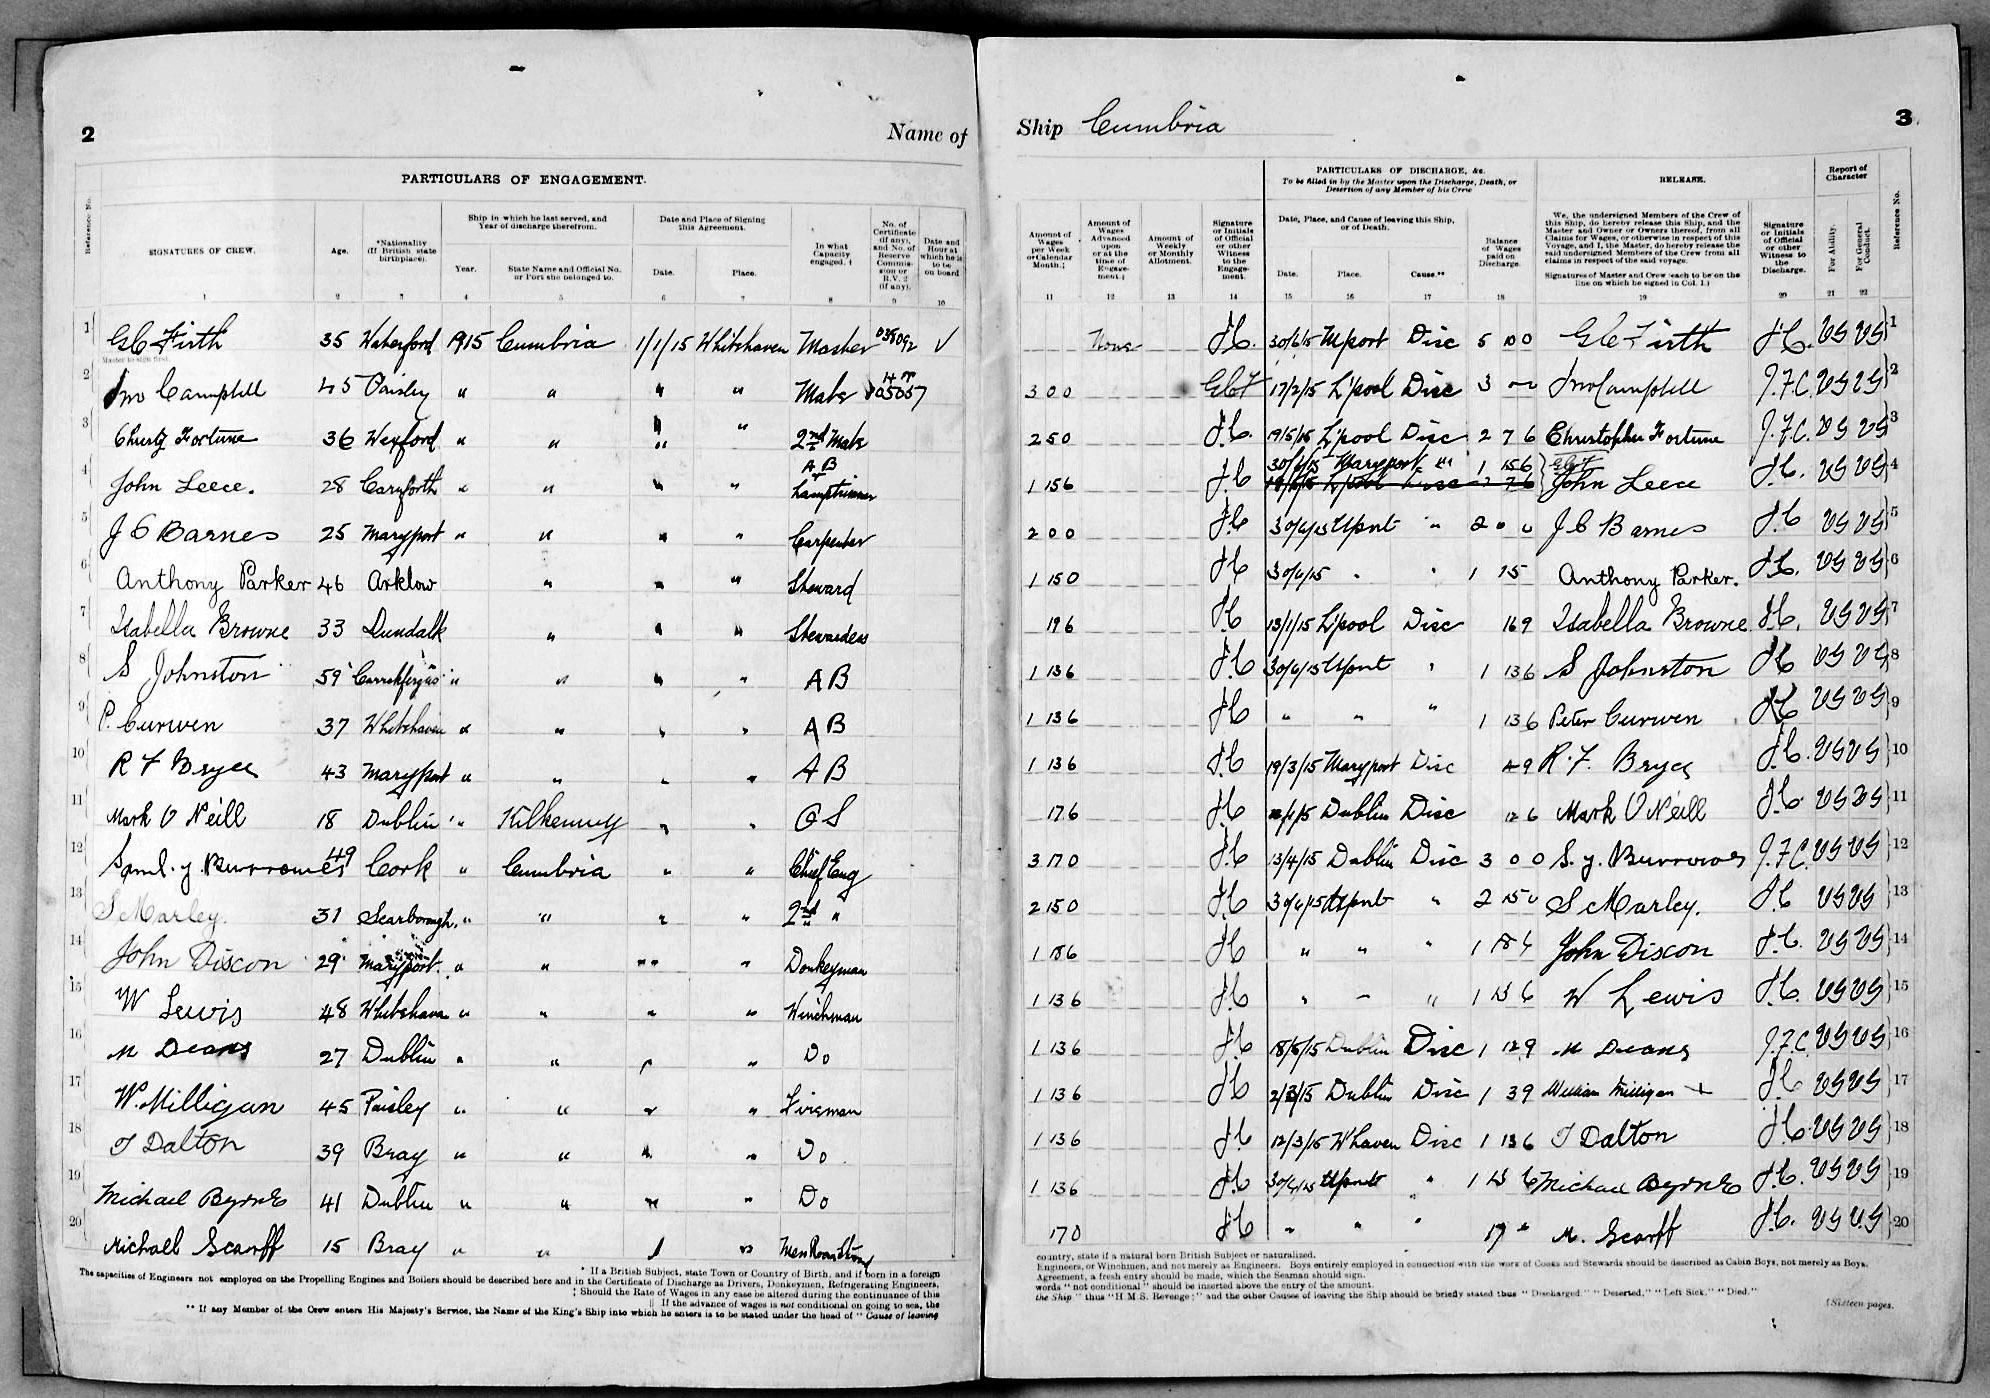 2
Name of
PARTICULARS OF ENGAGEMENT.
Reference No.
SIGNATURES OF CREW.
Age.
*Nationality (If British state birthplace).
Ship in which he last served, and Year of discharge therefrom.
Year.
State Name and Official No. or Port she belonged to.
Date and Place of Signing this Agreement.
Date.
Place.
In what Capacity engaged. †
No. of Certificate (if any), and No. of Reserve Commission or R.V. 2 (if any).
Date and Hour at which he is to be on board
1 2 3 4 5 6 7 8 9 10
1 G C Firth 35 Waterford 1915 Cumbria 1/1/15 Whitehaven Master 038092 √
Master to sign first.
2 Jno Campbell 45 Paisley " " " " Mate 05057
3 Christy Fortune 36 Wexford " " " " 2nd Mate
4 John Leece. 28 Carnforth " " " " A B Lamptrimmer
5 J C Barnes 25 Maryport " " " " Carpenter
6 Anthony Parker 46 Arklow " " " Steward
7 Isabella Browne 33 Dundalk " " " Stewardess
8 S Johnston 59 Carrickfergus " " " " A B
9 P. Curwen 37 Whitehaven " " " " A B
10 R F Bryce 43 Maryport " " " " A B
11 Mark O Neill 18 Dublin " Kilkenny " " O S
12 Saml. J. Burrowes 49 Cork " Cumbria " " Chief Eng
13 S Marley. 31 Scarborough. " " " " 2nd "
14 John Dixon 29 Maryport. " " " " Donkeyman
15 W Lewis 48 Whitehaven " " " " Winchman
16 M Deans 27 Dublin " " " " Do
17 W. Milligan 45 Paisley " " " " Fireman
18 T Dalton 39 Bray " " " " Do
19 Michael Byrne 41 Dublin " " " " Do
20 Michael Scarff 15 Bray " " " " Mess Room Steward
* If a British Subject, state Town or Country of Birth, and if born in a foreign
The capacities of Engineers not employed on the Propelling Engines and Boilers should be described here and in the Certificate of Discharge as Drivers, Donkeymen, Refrigerating Engineers,
‡ Should the Rate of Wages in any case be altered during the continuance of this
|| If the advance of wages is not conditional on going to sea, the
** If any Member of the Crew enters His Majesty's Service, the Name of the King's Ship into which he enters is to be stated under the head of " Cause of leaving
Ship Cumbria
3
PARTICULARS OF DISCHARGE, &c.
To be filled in by the Master upon the Discharge, Death, or Desertion of any Member of his Crew
RELEASE.
Report of Character
Reference No.
Amount of Wages per Week or Calendar Month.‡
Amount of Wages Advanced upon or at the time of Engagement.‖
Amount of Weekly or Monthly Allotment.
Signature or Initials of Official or other Witness to the Engagement.
Date, Place, and Cause of leaving this Ship, or of Death.
Date.
Place.
Cause.**
Balance of Wages paid on Discharge.
We, the undersigned Members of the Crew of this Ship, do hereby release this Ship, and the Master and Owner or Owners thereof, from all Claims for Wages, or otherwise in respect of this Voyage, and I, the Master, do hereby release the said undersigned Members of the Crew from all claims in respect of the said voyage.
Signatures of Master and Crew (each to be on the line on which he signed in Col. 1.)
Signature or Initials of Official or other Witness to the Discharge.
For Ability.
For General Conduct.
11 12 13 14 15 16 17 18 19 20 21 22
None J.C. 30/6/15 Mport Disc 5 0 0 G C Firth J.C. VG VG 1
3 0 0 GCF 17/2/15 L'pool Disc 3 Jno Campbell J.F.C. VG VG 2
2 5 0 J.C. 19/5/15 L'pool Disc 2 7 6 Christopher Fortune J.F.C. VG VG 3
1 15 6 J.C 30/6/15 Maryport " 1 15 6 GCF John Leece J.C. VG VG 4
2 0 0 J.C 30/6/15 Mport " 2 0 0 J C Barnes J.C VG VG 5
1 15 0 J.C 30/6/15 " " 1 15 Anthony Parker. J.C. VG VG 6
19 6 J.C 13/1/15 L'pool Disc 16 9 Isabella Browne J.C. VG VG 7
1 13 6 J.C 30/6/15 Mport " 1 13 6 S Johnston J.C VG VG 8
1 13 6 J.C " " " 1 13 6 Peter Curwen J.C VG VG 9
1 13 6 J.C 19/3/15 Maryport Disc 4 9 R. F. Bryce J.C. VG VG 10
17 6 J.C Dublin Disc 12 6 Mark O Neill J.C. VG VG 11
3 17 0 J.C 13/4/15 Dublin Disc 3 0 0 S. J. Burrowes J.F.C. VG VG 12
2 15 0 J.C 30/6/15 Mport " 2 15 0 S Marley. J.C VG VG 13
1 18 6 J.C " " " 1 18 6 John Dixon J.C. VG VG 14
1 13 6 J.C " " " 1 13 6 W Lewis J.C. VG VG 15
1 13 6 J.C 18/5/15 Dublin Disc 1 12 9 M Deans J.F.C. VG VG 16
1 13 6 J.C Dublin Disc 1 3 9 William Milligan + J.C VG VG 17
1 13 6 J.C 12/3/15 W'haven Disc 1 13 6 T Dalton J.C. VG VG 18
1 13 6 J.C 30/6/15 Mport " 1 13 6 Michael Byrne J.C. VG VG 19
17 0 J.C " " " 17 " M. Scarff J.C. VG V.G 20
country, state if a natural born British Subject or naturalized.
Engineers, or Winchmen, and not merely as Engineers. Boys entirely employed in connection with the work of Cooks and Stewards should be described as Cabin Boys, not merely as Boys.
Agreement, a fresh entry should be made, which the Seaman should sign.
words " not conditional " should be inserted above the entry of the amount.
the Ship " thus "H.M.S. Revenge;" and the other Causes of leaving the Ship should be briefly stated thus " Discharged " " Deserted," " Left Sick," " Died."
[Sixteen pages.